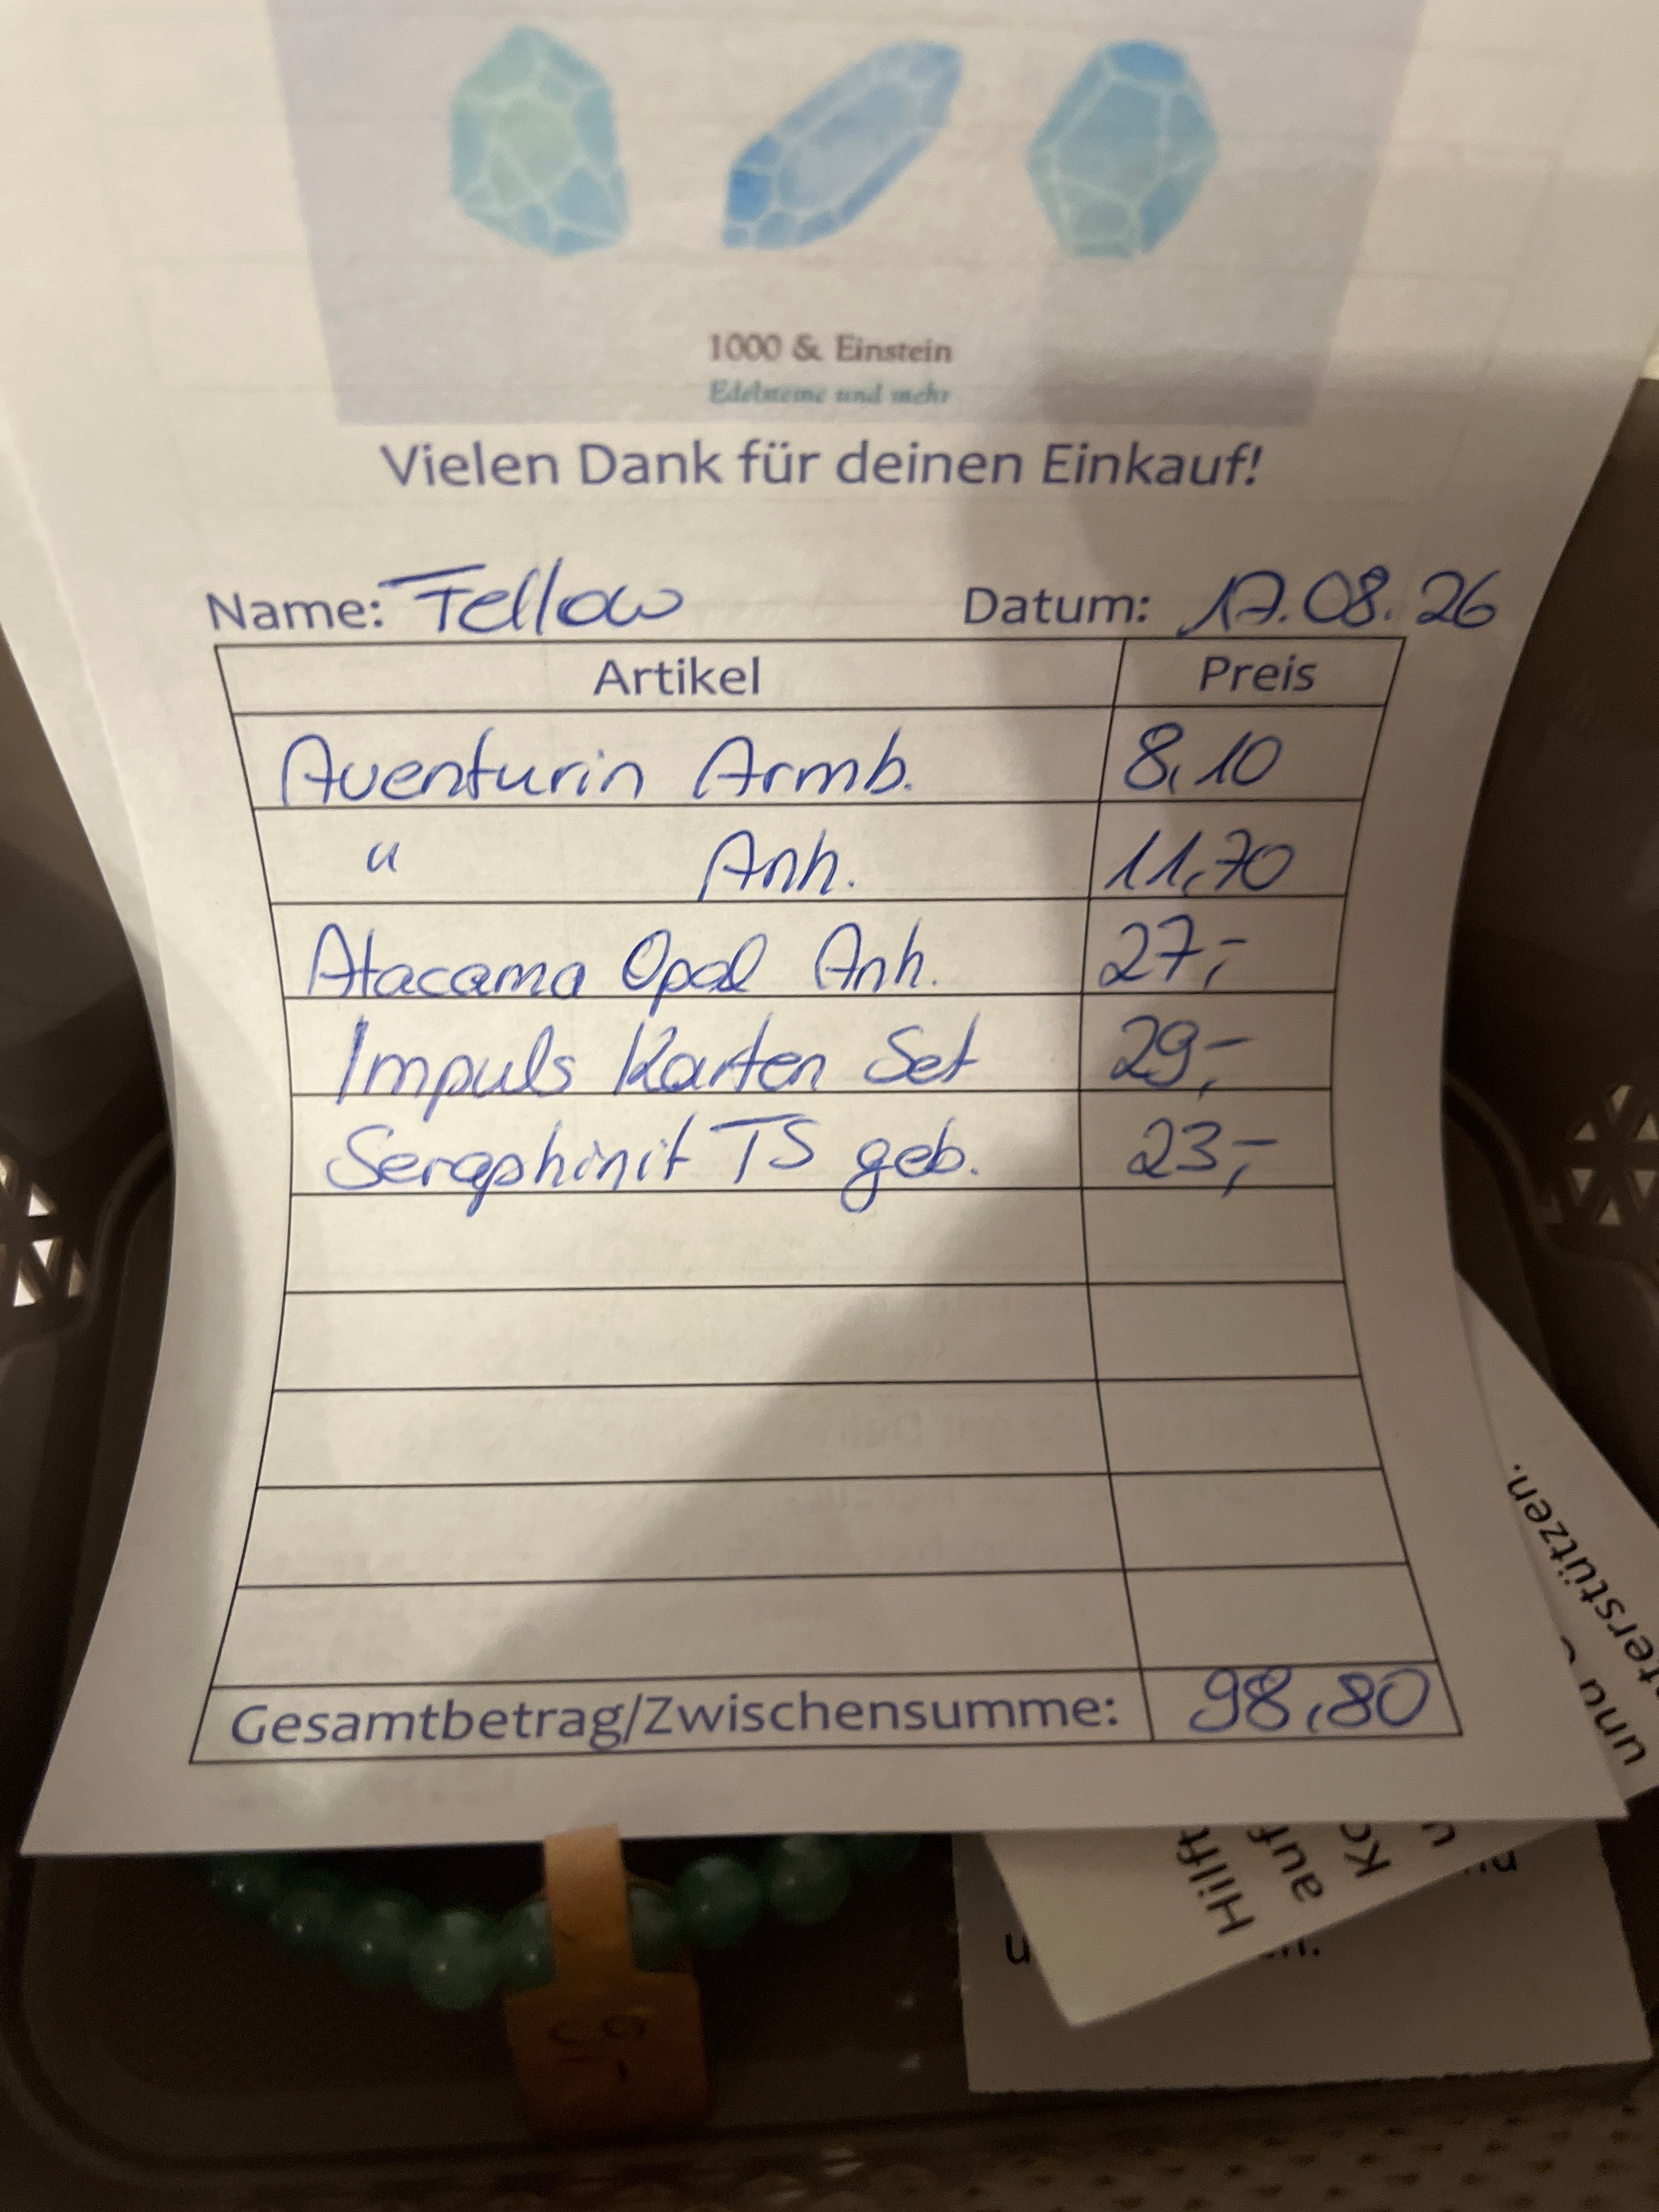 1000 & Einstein
Edelsteine und mehr
Vielen Dank für deinen Einkauf!
Name: Fellow Datum: 17.08.26
Artikel Preis
Aventurin Armb. 8,10
" Anh. 11,70
Atacama Opal Anh. 27,-
Impuls Karten Set 29,-
Seraphinit TS geb. 23,-
Gesamtbetrag/Zwischensumme: 98,80
terstützen.
und
Hilft
auf